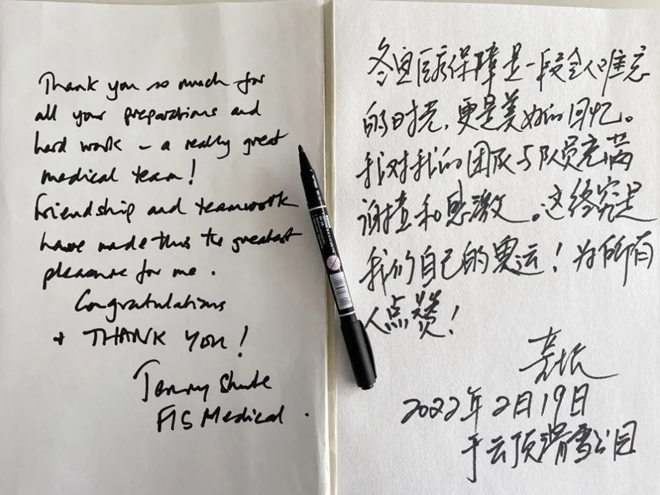 Thank you so much for
all your preparations and
hard work - a really great
medical team!
Friendship and teamwork
have made this the greatest
pleasure for me.
Congratulations
+ THANK YOU!
Jenny Shute
FIS Medical.
冬奥医疗保障是一段令人难忘
的时光，更是美好的回忆。
我对我的团队与队员充满
谢意和感激。这终究是
我们自己的奥运！为所有
人点赞！
2022年2月19日
于云顶滑雪公园